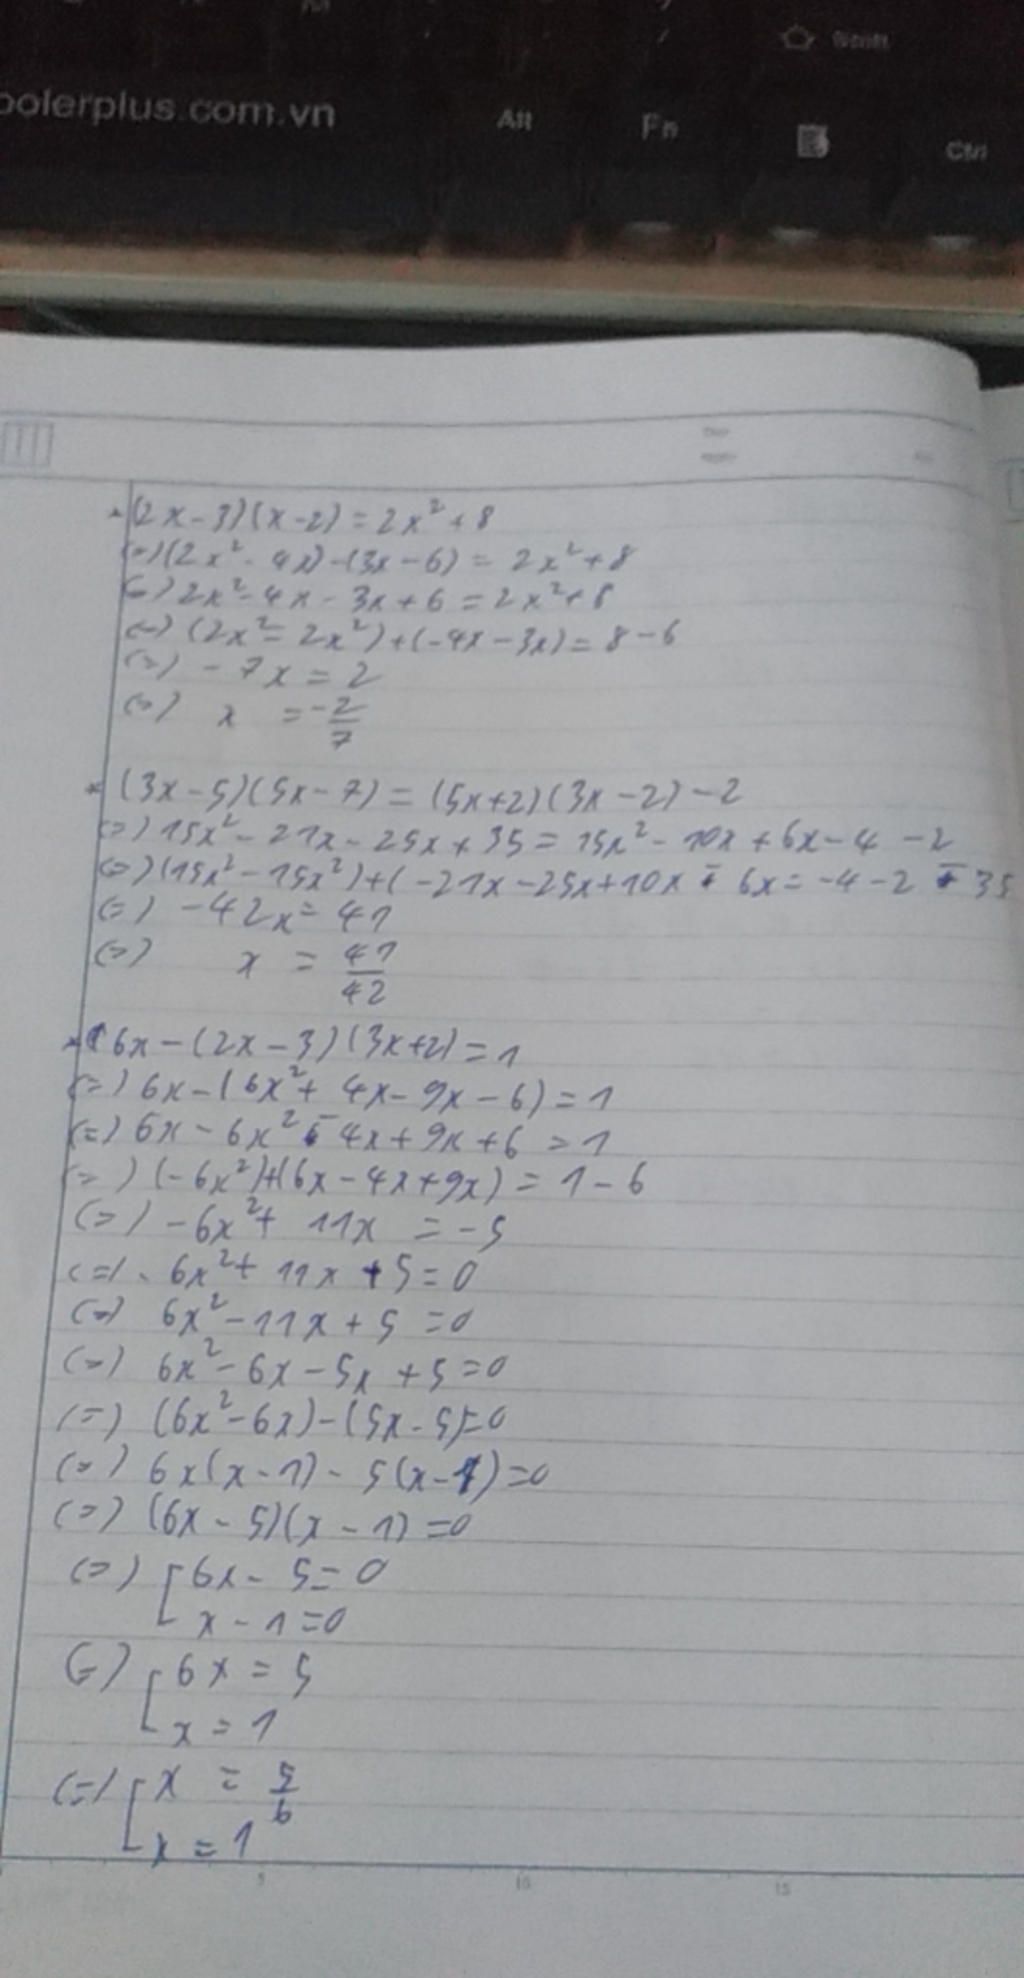 oolerplus.com.vn
Alt
Fn
Ctrl
(2x-3)(x-2) = 2x² + 8
(=) (2x² - 4x) - (3x - 6) = 2x² + 8
(=) 2x² - 4x - 3x + 6 = 2x² + 8
(=) (2x² - 2x²) + (-4x - 3x) = 8 - 6
(=) - 7x = 2
(=) x = -2/7
* (3x-5)(5x-7) = (5x+2)(3x-2) - 2
(=) 15x² - 21x - 25x + 35 = 15x² - 10x + 6x - 4 - 2
(=) (15x² - 15x²) + (-21x - 25x + 10x - 6x = -4 - 2 - 35
(=) -42x = 41
(=) x = 41/42
* 6x - (2x-3)(3x+2) = 1
(=) 6x - (6x² + 4x - 9x - 6) = 1
(=) 6x - 6x² - 4x + 9x + 6 = 1
(=) (-6x²) + (6x - 4x + 9x) = 1 - 6
(=) -6x² + 11x = -5
(=) - 6x² + 11x + 5 = 0
(=) 6x² - 11x + 5 = 0
(=) 6x² - 6x - 5x + 5 = 0
(=) (6x² - 6x) - (5x - 5) = 0
(=) 6x(x-1) - 5(x-1) = 0
(=) (6x - 5)(x - 1) = 0
(=) [ 6x - 5 = 0
x - 1 = 0
(=) [ 6x = 5
x = 1
(=) [ x = 5/6
x = 1
5 10 15